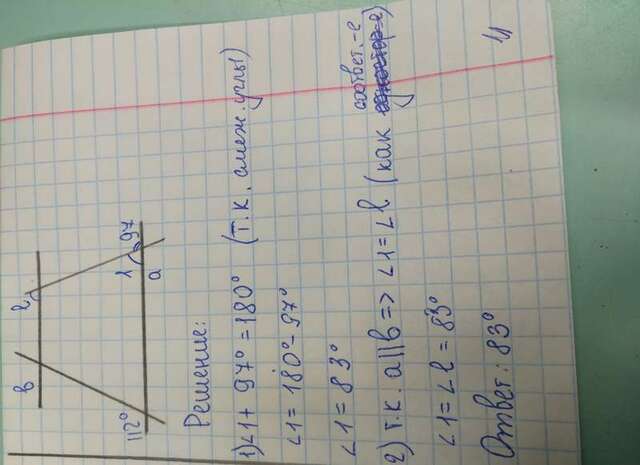 в
l
112°
1
97
a
Решение:
1) ∠1 + 97° = 180° (т.к. смеж. углы)
∠1 = 180° - 97°
∠1 = 83°
2) т.к. a || в => ∠1 = ∠l (как соответ.-е)
∠1 = ∠l = 83°
Ответ: 83°